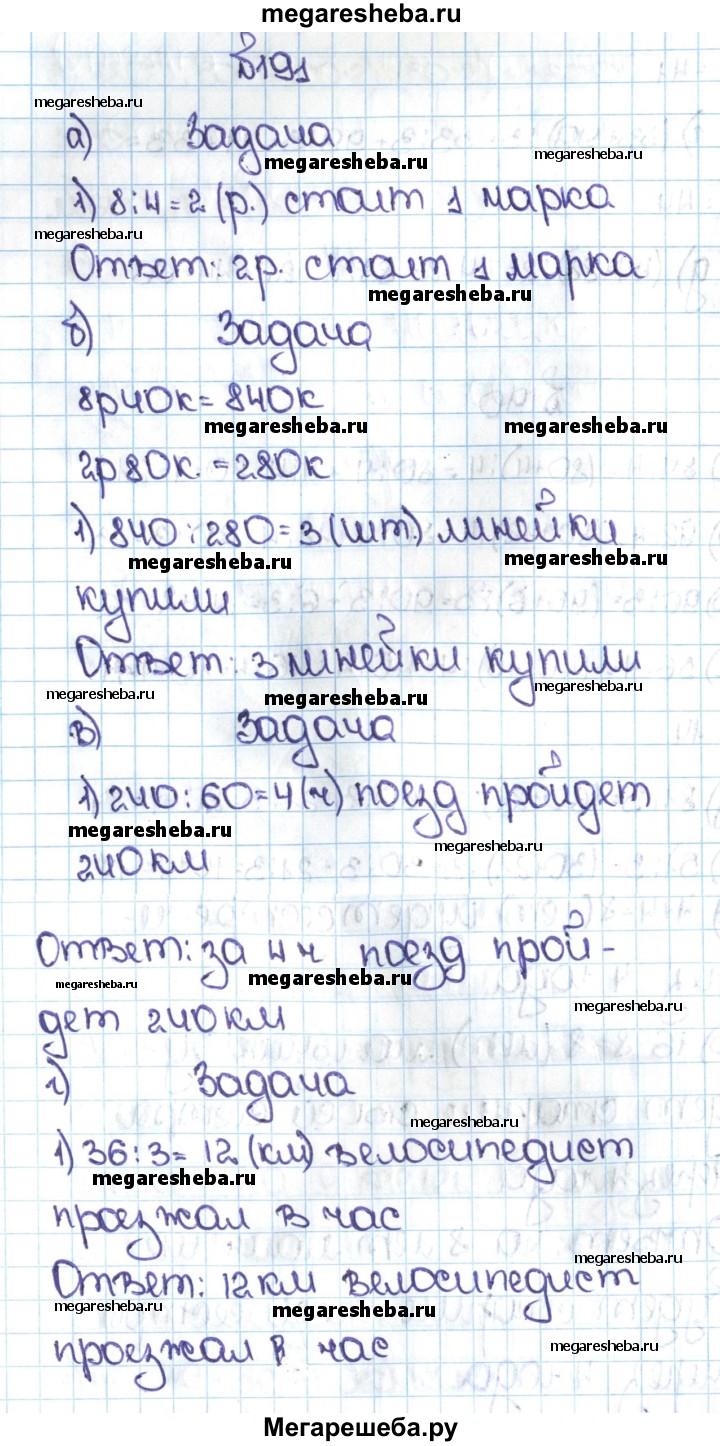 megaresheba.ru
№191
megaresheba.ru
а) Задача
megaresheba.ru
megaresheba.ru
1) 8:4=2 (р.) стоит 1 марка
megaresheba.ru
Ответ: 2р. стоит 1 марка
megaresheba.ru
б) Задача
8р40к=840к
megaresheba.ru
megaresheba.ru
2р80к.=280к
1) 840:280=3(шт.) линейки
megaresheba.ru
megaresheba.ru
купили
Ответ: 3 линейки купили
megaresheba.ru
megaresheba.ru
megaresheba.ru
в) Задача
1) 240:60=4(ч) поезд пройдет
megaresheba.ru
megaresheba.ru
240км
Ответ: за 4ч поезд прой-
megaresheba.ru
megaresheba.ru
megaresheba.ru
дет 240км
г) Задача
megaresheba.ru
1) 36:3=12(км) велосипедист
megaresheba.ru
проезжал в час
megaresheba.ru
Ответ: 12км велосипедист
megaresheba.ru
megaresheba.ru
проезжал в час
megaresheba.ru
Мегарешеба.ру